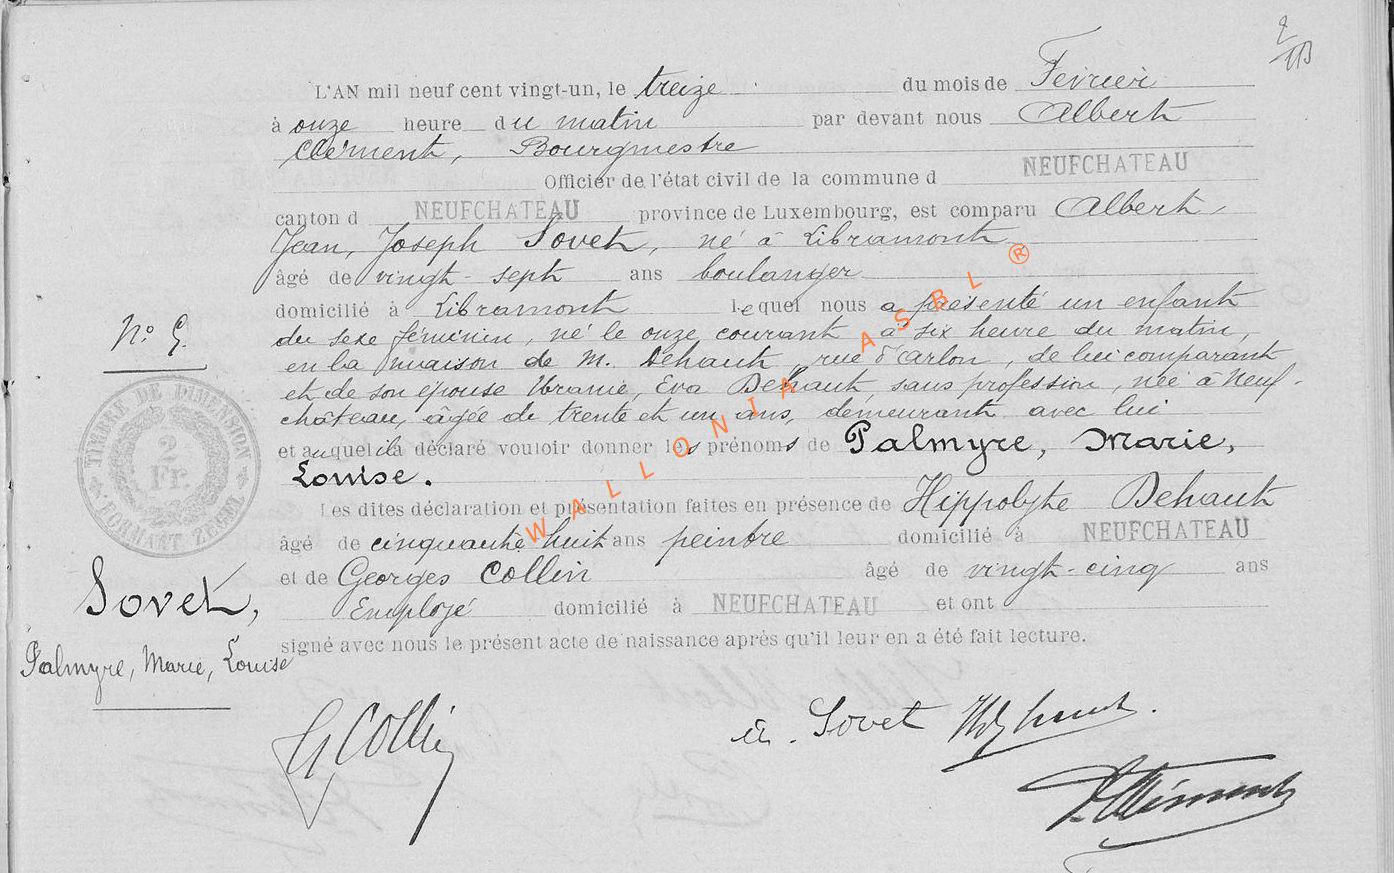 L'AN mil neuf cent vingt-un, le treize du mois de Fevrier
à onze heure du matin par devant nous Albert
Clément, Bourgmestre
Officier de l'état civil de la commune d NEUFCHATEAU
canton d NEUFCHATEAU province de Luxembourg, est comparu Albert,
Jean, Joseph Sovet, né à Libramont
âgé de vingt-sept ans boulanger
domicilié à Libramont lequel nous a présenté un enfant
du sexe féminin, né le onze courant à six heure du matin,
en la maison de M. Dehaut, rue d'Arlon, de lui comparant
et de son épouse Uranie, Eva Dehaut, sans profession, née à Neuf-
château, âgée de trente et un ans, demeurant avec lui
et auquel il a déclaré vouloir donner les prénoms de Palmyre, Marie,
Louise.
Les dites déclaration et présentation faites en présence de Hippolyte Dehaut
âgé de cinquante huit ans peintre domicilié à NEUFCHATEAU
et de Georges Collin âgé de vingt-cinq ans
Employé domicilié à NEUFCHATEAU et ont
signé avec nous le présent acte de naissance après qu'il leur en a été fait lecture.
N° 9.
TIMBRE DE DIMENSION
2
Fr.
FORMAAT ZEGEL
Sovet,
Palmyre, Marie, Louise
G Collin
A. Sovet
Clément
WALLONIA ASBL ®